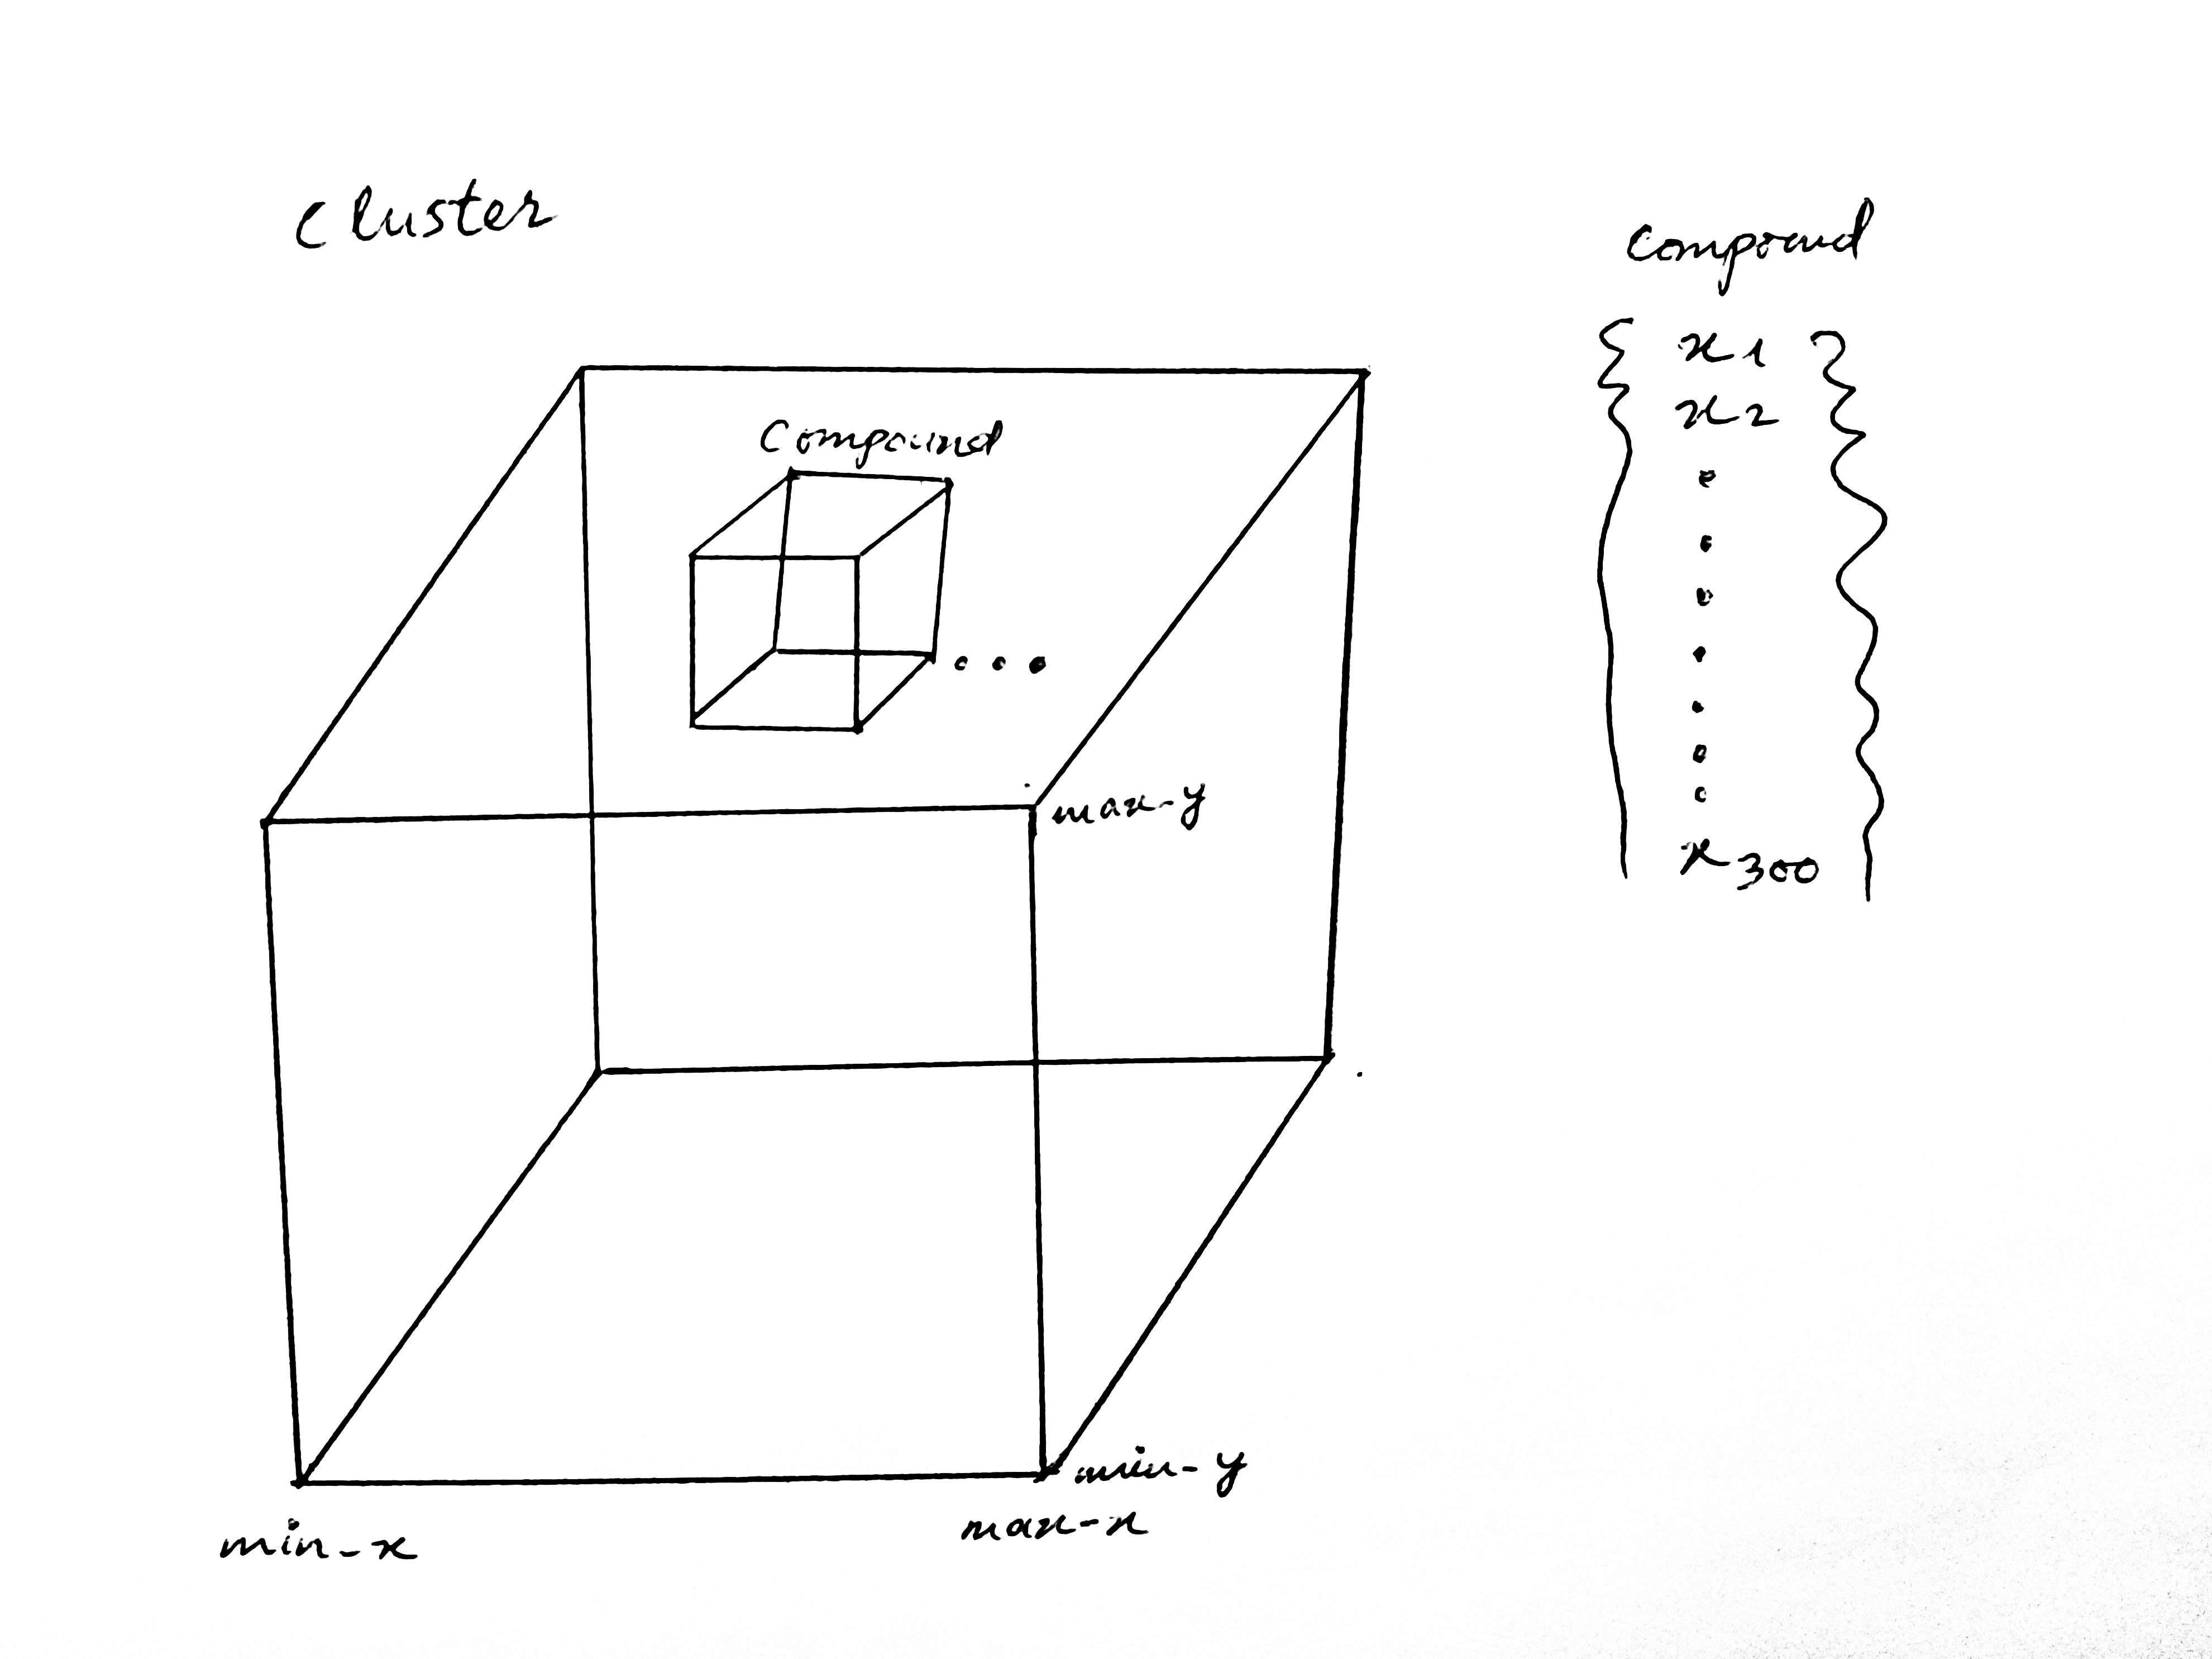 Cluster
Compound
max-y
min-y
min-x
max-x
Compound
x1
x2
x300